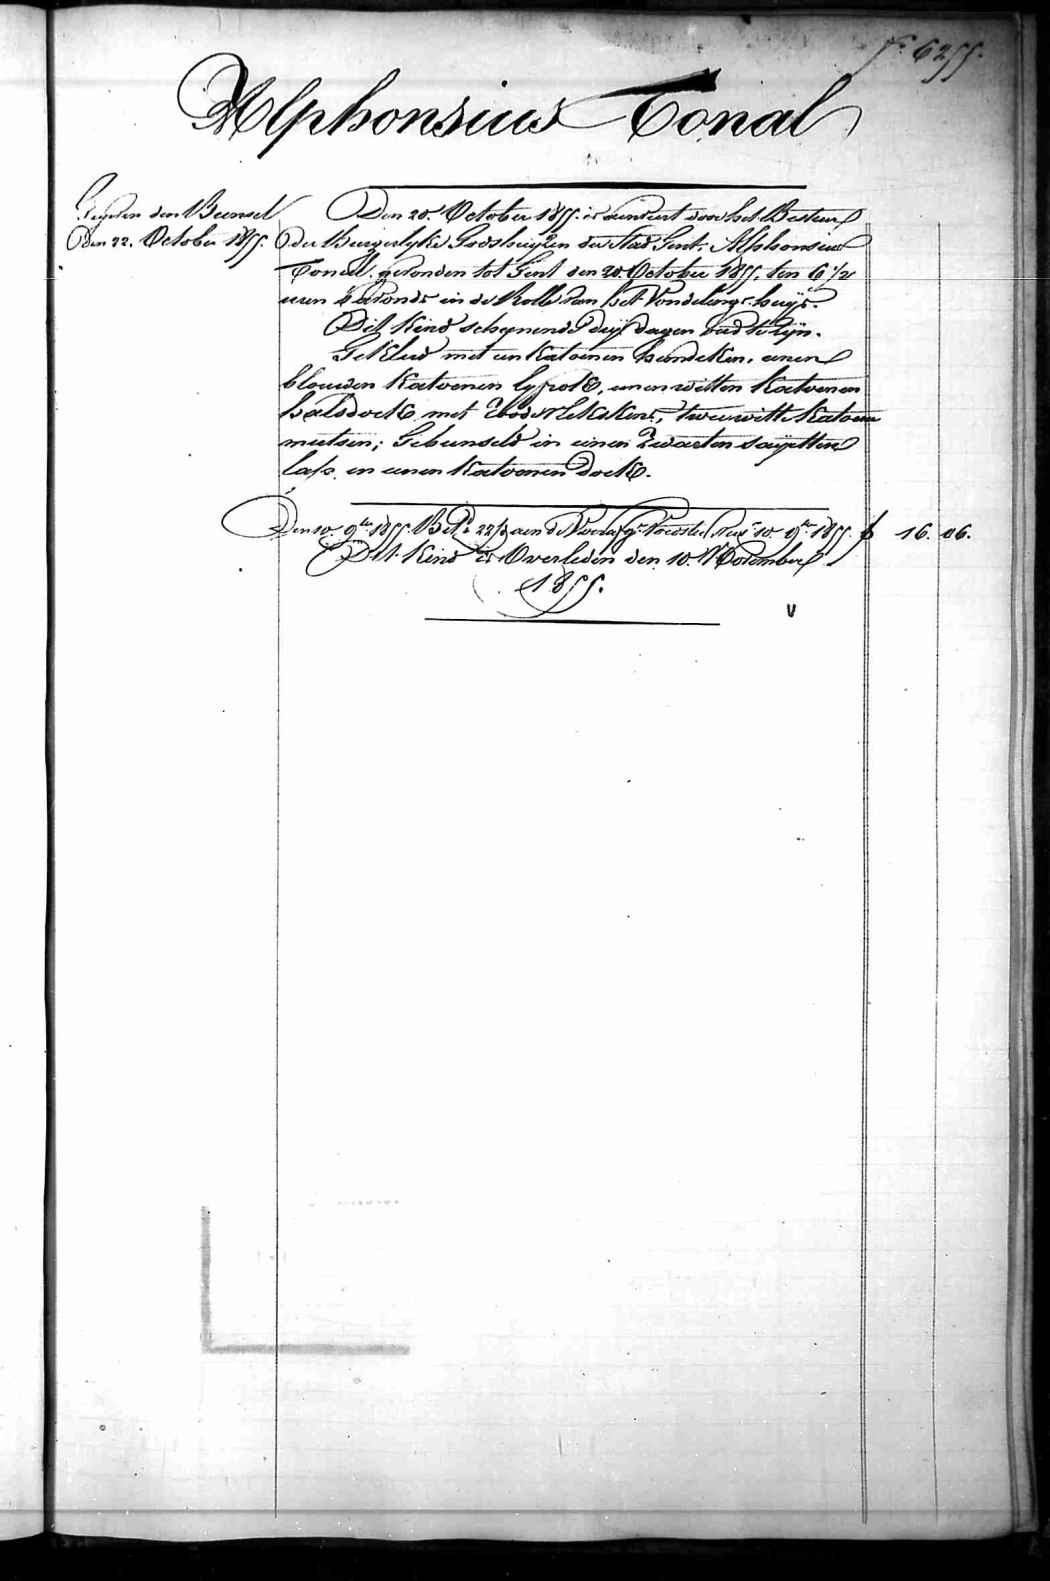 Fº 6255.
Alphonsius Tonal
den Bunsel
Den 22. October 1855.
Den 20. October 1855. is aenveert door het Bestuur
Der Burgerlyke Godshuyzen der Stad Gent, Alphonsius
Tonal. gevonden tot Gent den 20. October 1855. ten 6 1/2
uren s'avonds in de Rolle van het Vondelings-huys.
Dit Kind schynende dry dagen oud te zyn.
Gekleed met een Katoenen hemdeken, eenen
blouwen Katoenen lyfrok, eenen witten Katoenen
halsdoek met roode stekskens, twee witte Katoene
mutsen; Gebunseld in eenen zwarten sayetten
lap, en eenen Katoenen doek.
Den 10. 9ber 1855. aen de 10. 9ber 1855. f 16. 06.
Dit Kind is Overleden den 10. November
1855.
v